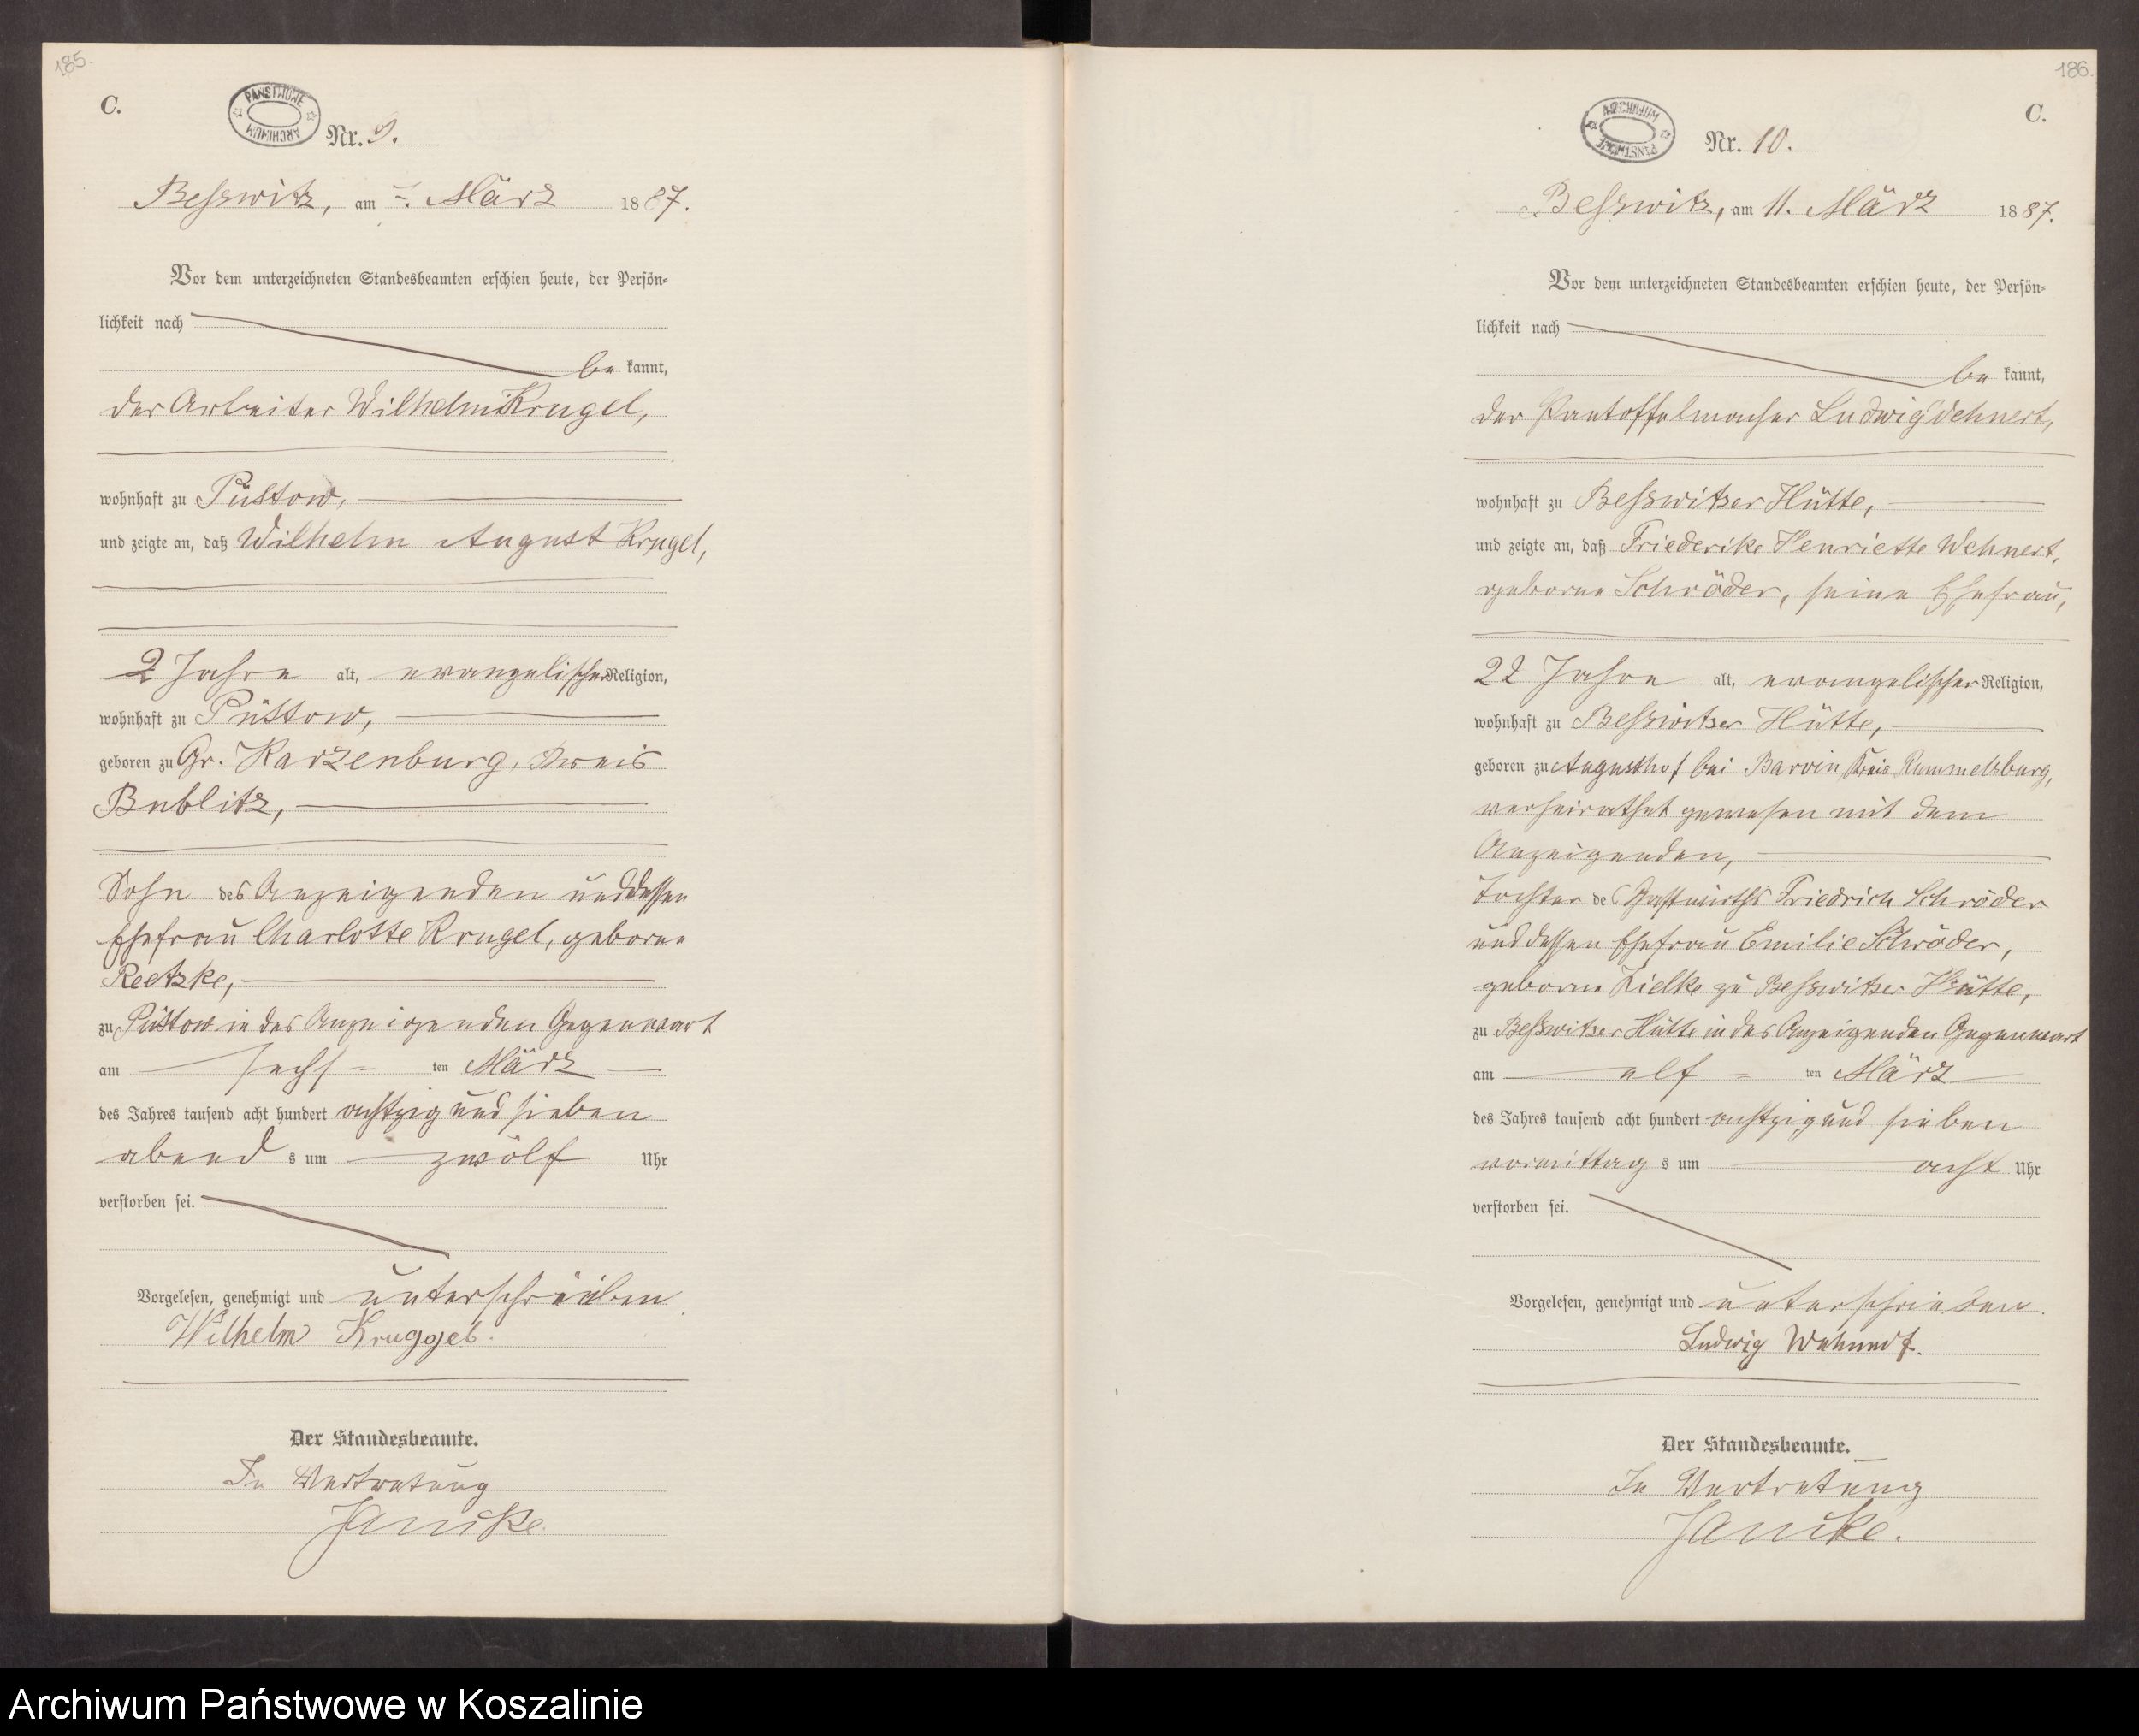 185.
C.
PAŃSTWOWE ARCHIWUM
Nr. 9.
Besswitz, am März 1887.
Vor dem unterzeichneten Standesbeamten erschien heute, der Persön-
lichkeit nach
be kannt,
der Arbeiter Wilhelm Krugel,
wohnhaft zu Püstow,
und zeigte an, daß Wilhelm August Krugel,
2 Jahre alt, evangelischer Religion,
wohnhaft zu Püstow,
geboren zu Gr. Karzenburg, Kreis
Bublitz,
Sohn des Anzeigenden und dessen
Ehefrau Charlotte Krugel, geborne
Reetzke,
zu Püstow in des Anzeigenden Gegenwart
am sechs = ten März
des Jahres tausend acht hundert achtzig und sieben
abend s um zwölf Uhr
verstorben sei.
Vorgelesen, genehmigt und unterschrieben
Wilhelm Kruggel.
Der Standesbeamte.
In Vertretung
Janike
186.
C.
ARCHIWUM PAŃSTWOWE
Nr. 10.
Besswitz, am 11. März 1887.
Vor dem unterzeichneten Standesbeamten erschien heute, der Persön-
lichkeit nach
be kannt,
der Pantoffelmacher Ludwig Wehnert,
wohnhaft zu Besswitzer Hütte,
und zeigte an, daß Friederike Henriette Wehnert,
geborne Schröder, seine Ehefrau,
22 Jahre alt, evangelischer Religion,
wohnhaft zu Besswitzer Hütte,
geboren zu Augusthof bei Barvin Kreis Rummelsburg,
verheirathet gewesen mit dem
Anzeigenden,
Tochter des Gastwirths Friedrich Schröder
und dessen Ehefrau Emilie Schröder,
geborne Zielke zu Besswitzer Hütte,
zu Besswitzer Hütte in des Anzeigenden Gegenwart
am elf = ten März
des Jahres tausend acht hundert achtzig und sieben
vormittag s um acht Uhr
verstorben sei.
Vorgelesen, genehmigt und unterschrieben.
Ludwig Wehnert.
Der Standesbeamte.
In Vertretung
Janike.
Archiwum Państwowe w Koszalinie